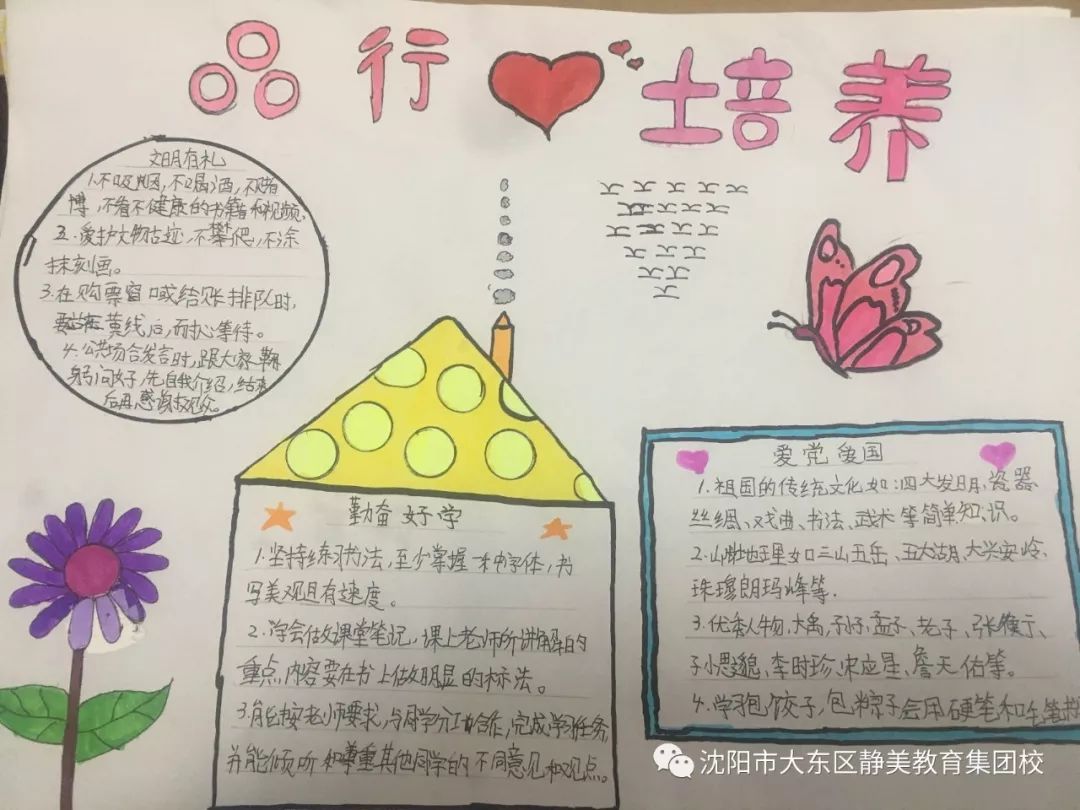 品行培养
文明有礼
1.不吸烟,不喝酒,不赌
博,不看不健康的书籍和视频.
2.爱护文物古迹,不攀爬,不涂
抹刻画。
3.在购票窗口或结账排队时,
黄线后,耐心等待。
4.公共场合发言时,跟大家鞠
躬问好,先自我介绍,结束
后再感谢观众。
勤奋好学
1.坚持练习书法,至少掌握一种字体,书
写美观且有速度。
2.学会做课堂笔记,课上老师所讲解的
重点,内容要在书上做明显的标法。
3.能按老师要求,与同学分工合作,完成学习任务
并能倾听和尊重其他同学的不同意见和观点。
爱党爱国
1.祖国的传统文化如:四大发明、瓷器、
丝绸、戏曲、书法、武术等简单知识。
2.山川地理如三山五岳、五大湖、大兴安岭、
珠穆朗玛峰等.
3.优秀人物,大禹、孔子、孟子、老子、张衡、
孙思邈、李时珍、宋应星、詹天佑等。
4.学习包饺子,包粽子会用硬笔和毛笔
沈阳市大东区静美教育集团校